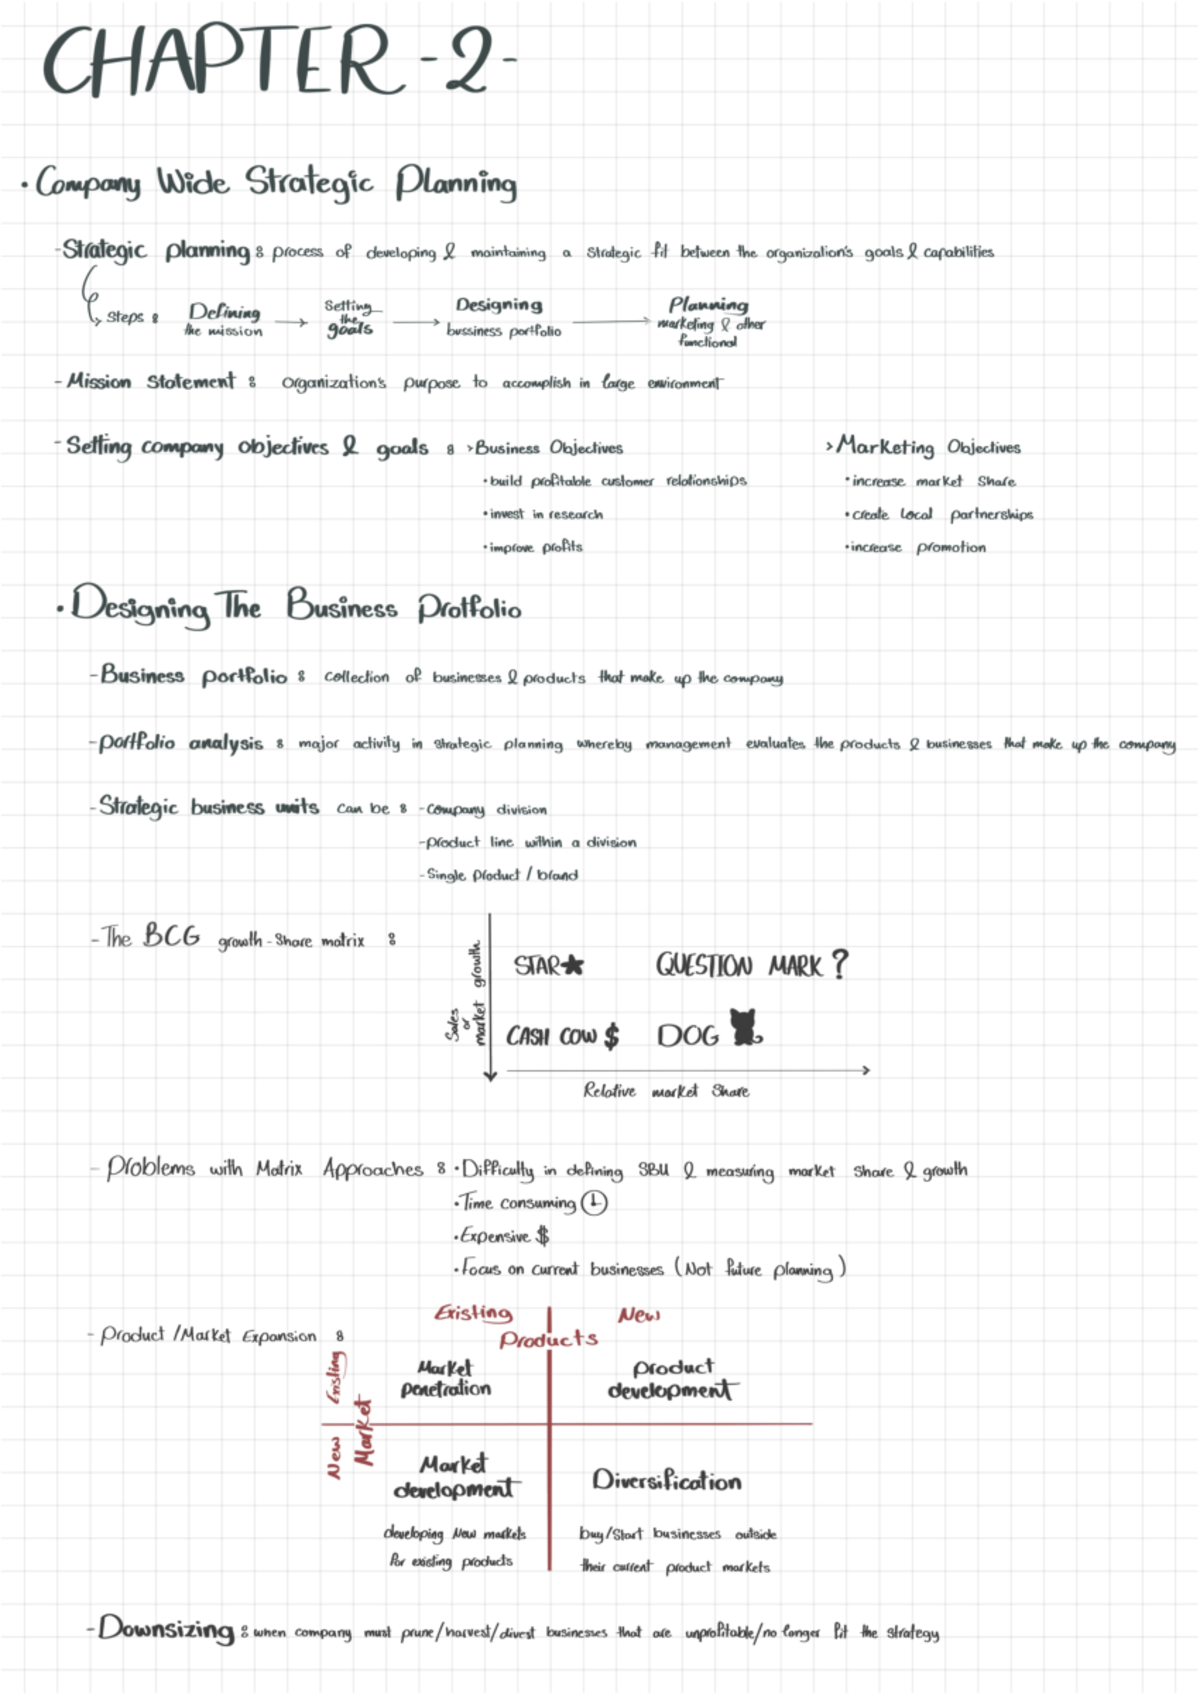 CHAPTER -2-
• Company Wide Strategic Planning
- Strategic planning : process of developing & maintaining a strategic fit between the organization's goals & capabilities
Steps : Defining the mission → Setting the goals → Designing bussiness portfolio → Planning marketing & other functional
- Mission Statement : organization's purpose to accomplish in large environment
- Setting company objectives & goals : > Business Objectives
• build profitable customer relationships
• invest in research
• improve profits
> Marketing Objectives
• increase market share
• create local partnerships
• increase promotion
• Designing The Business Protfolio
- Business portfolio : collection of businesses & products that make up the company
- portfolio analysis : major activity in strategic planning whereby management evaluates the products & businesses that make up the company
- Strategic business units can be : - company division
- product line within a division
- Single product / brand
- The BCG growth-share matrix :
Sales
or
market growth
STAR★ QUESTION MARK ?
CASH COW $ DOG
Relative market share
- Problems with Matrix Approaches : • Difficulty in defining SBU & measuring market share & growth
• Time consuming
• Expensive $
• Focus on current businesses (Not future planning)
- Product /Market Expansion :
Existing New
Products
Existing
New
Market
Market
penetration
product
development
Market
development
developing New markets
for existing products
Diversification
buy/start businesses outside
their current product markets
- Downsizing : when company must prune/harvest/divest businesses that are unprofitable/no longer fit the strategy